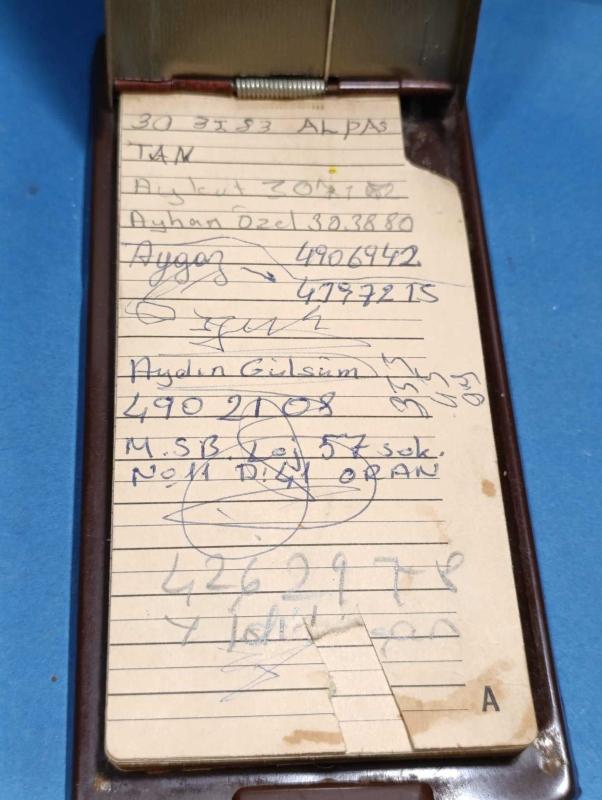 30 3153 ALPAS
TAN
Aykut
Ayhan Özel 30.38.80
Aygaz 4906942
4797215
Aydın Gülsüm
490 21 08
M.SB. Loj 57 sok.
No:11 D:41 ORAN
426 29 78
A